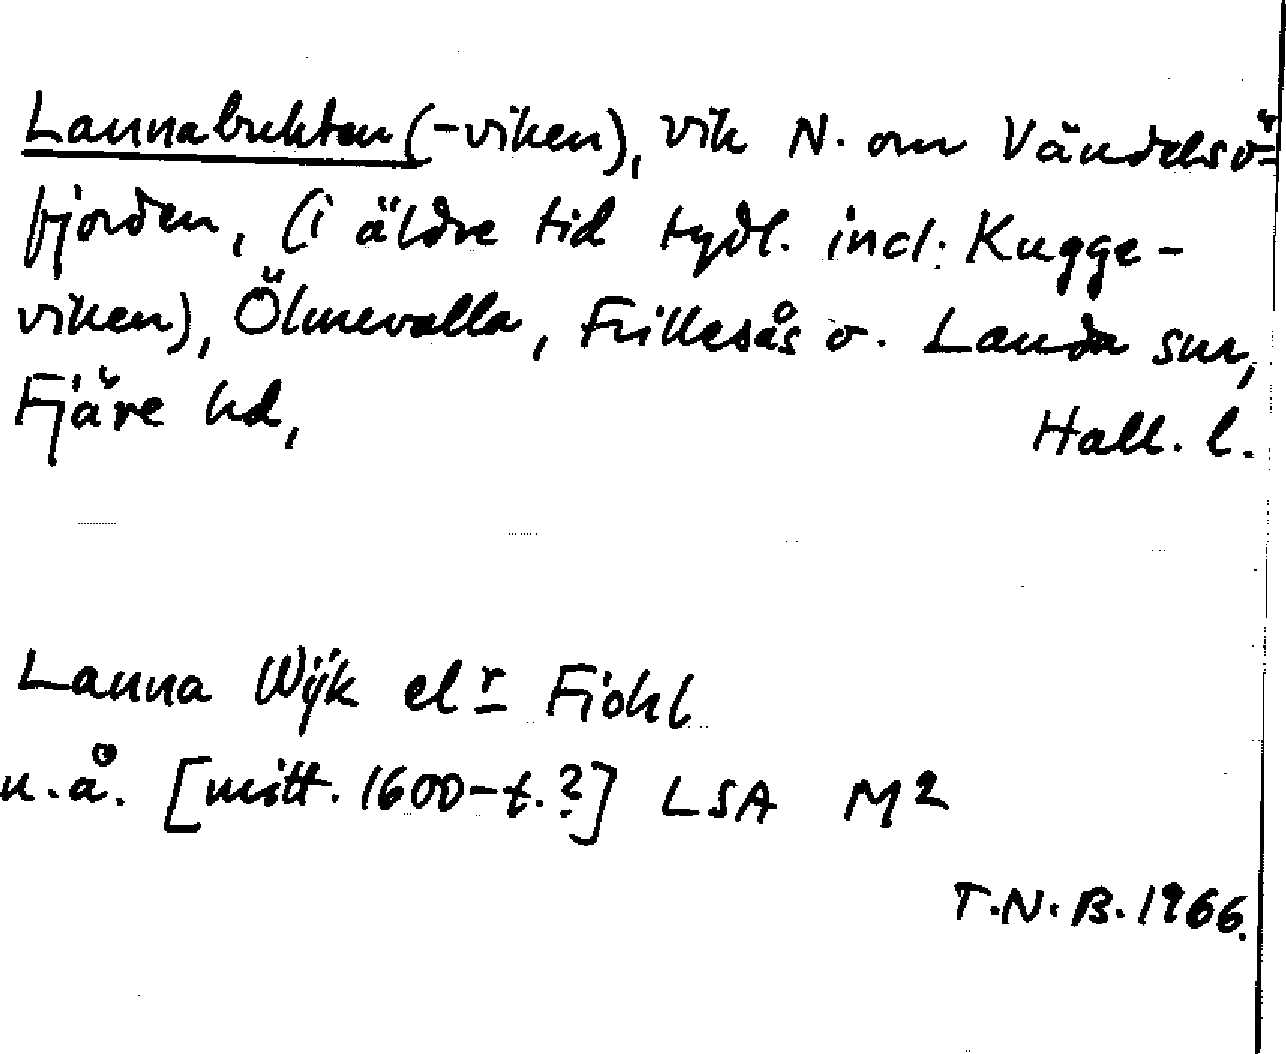 Lannabukten (-viken), vik N. om Vändelsö-
fjorden, (i äldre tid tydl. incl. Kugge-
viken), Ölmevalla, Frillesås o. Landa snr,
Fjäre hd, Hall. l.
Lanna Wÿk elr Fiöhl
u.å. [mitt. 1600-t.?] LSA M2
T.N.B. 1966.